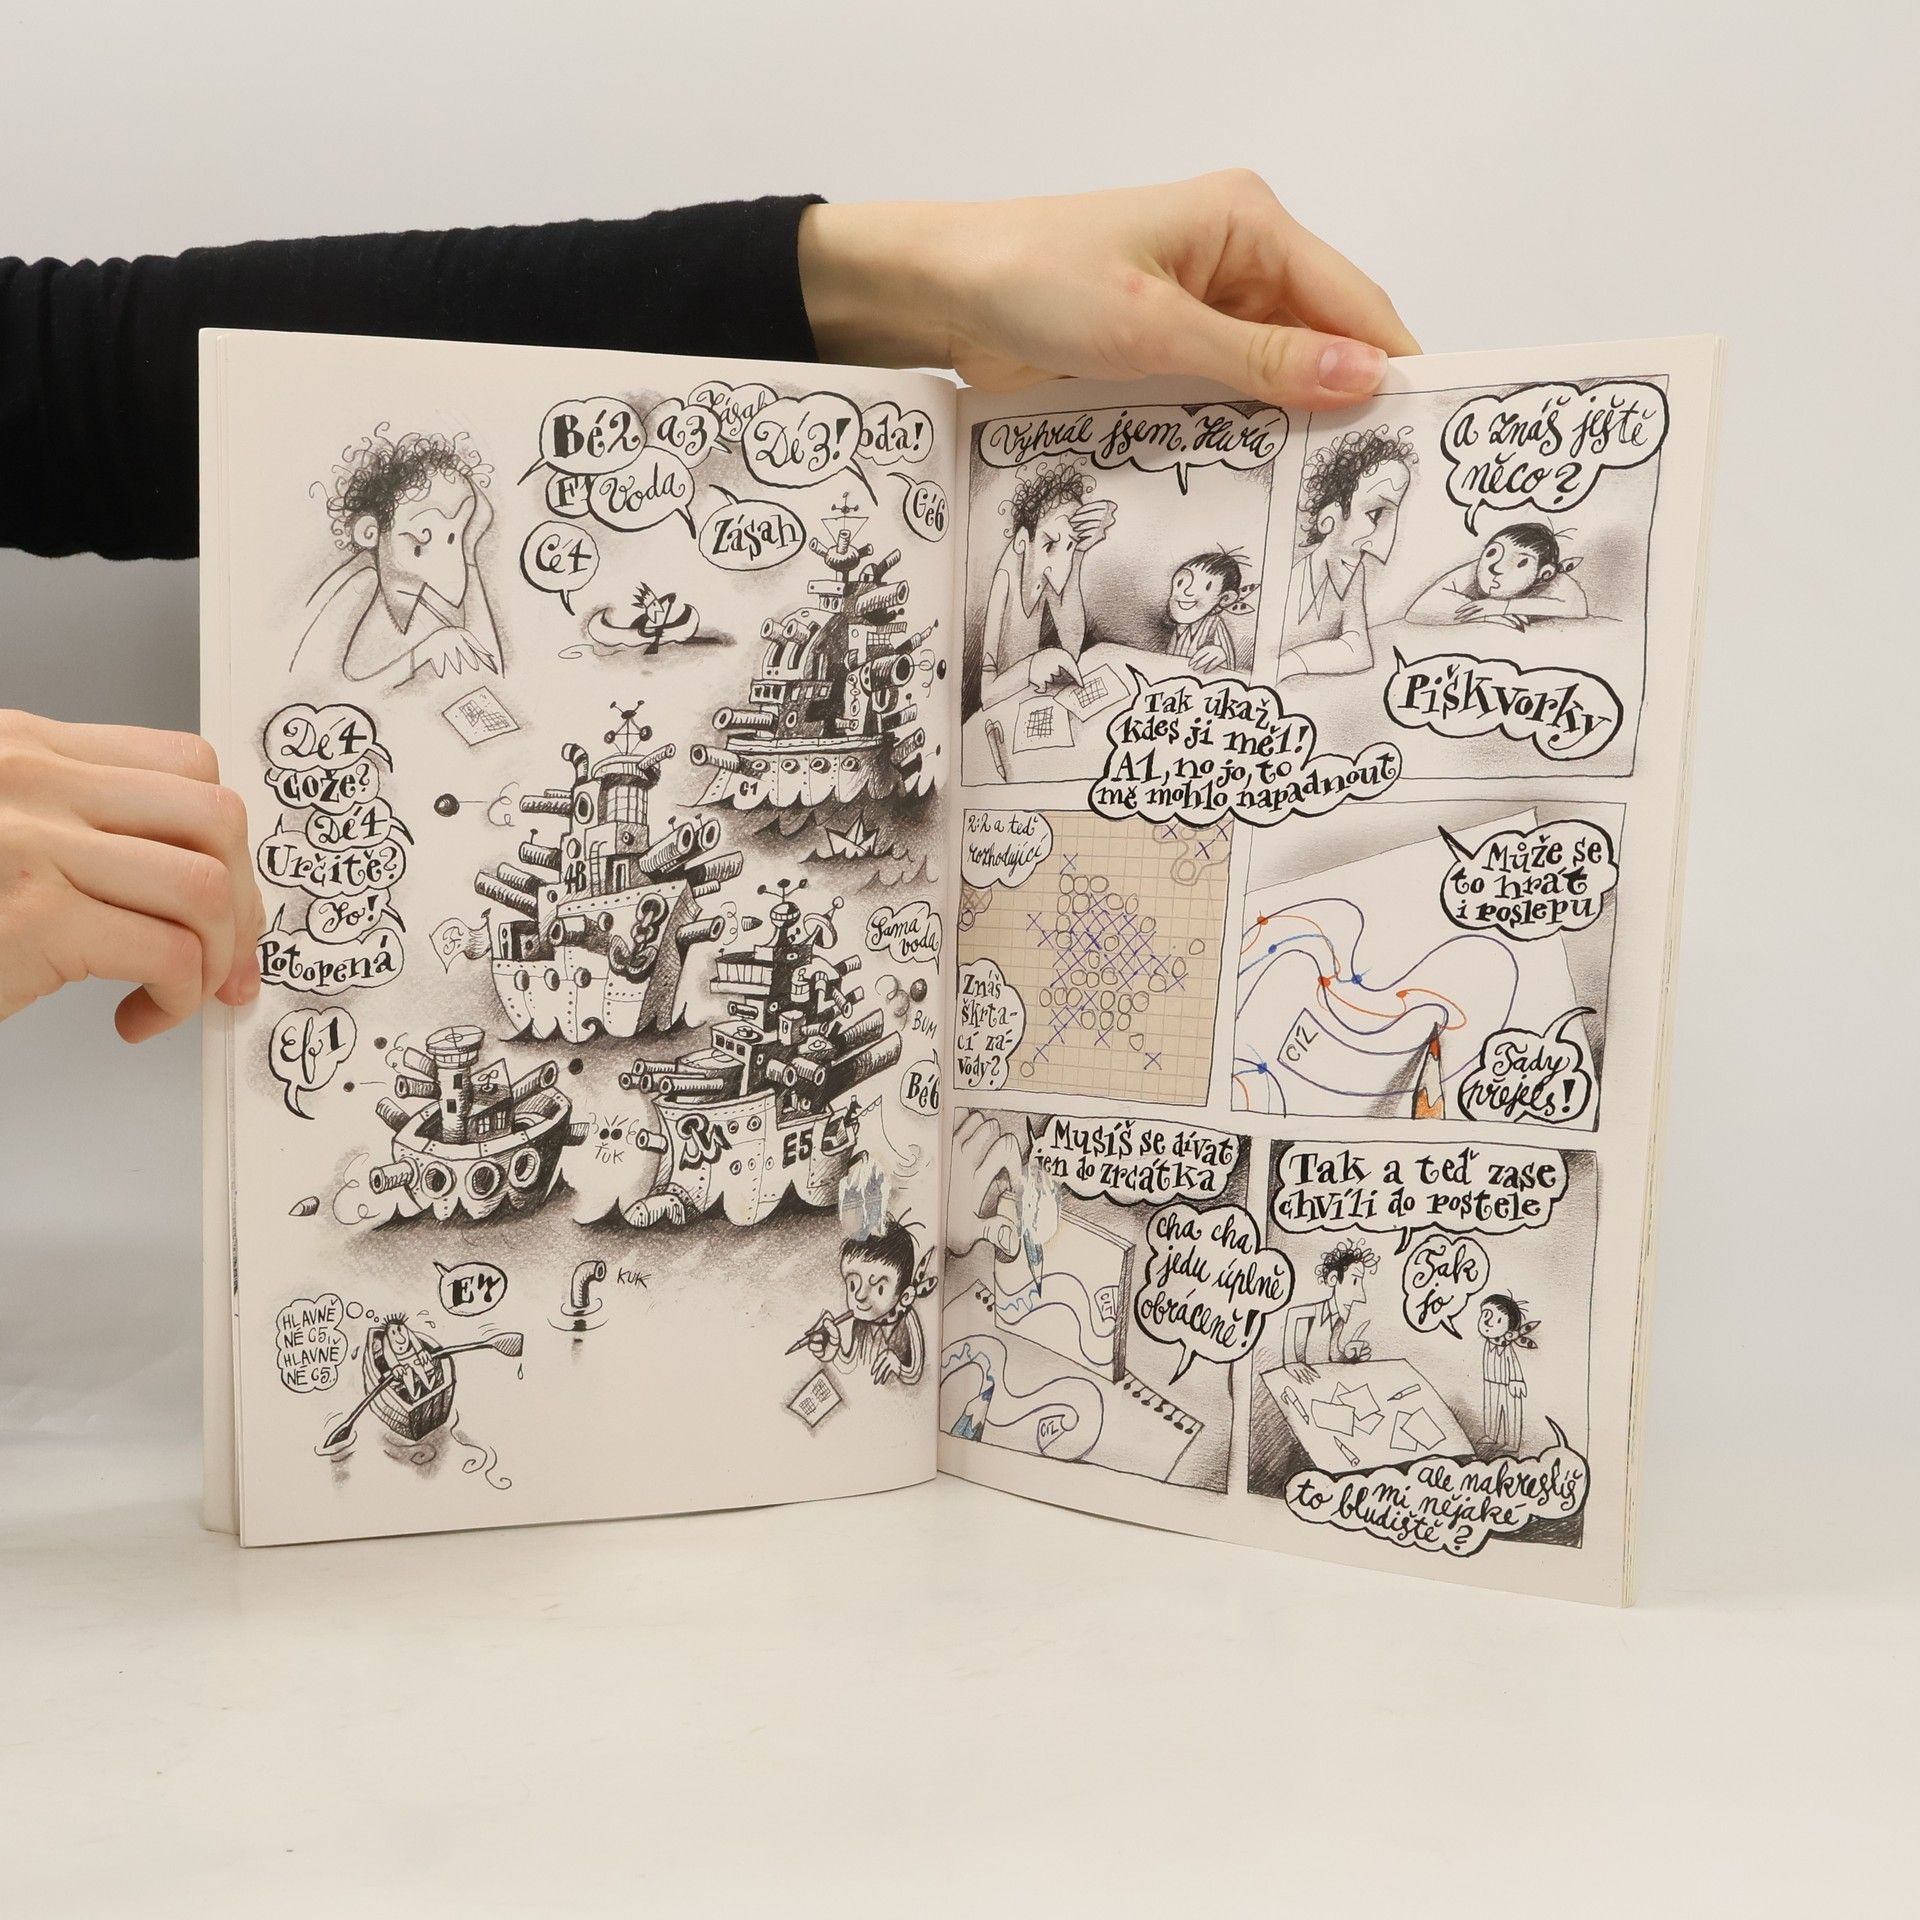 Bé2
a3
Zásah
Dé3!
oda!
F
Voda
Zásah
Gé6
Cé4
Dé4
cože?
Dé4
Určitě?
Jo!
Potopená
Ef1
C1
4B
F
E5
ŤUK
Sama
voda
BUM
Bé6
E7
KUK
HLAVNĚ
NE C5,
HLAVNĚ
NE C5..
Vyhrál jsem. Hurá
Tak ukaž,
kdes ji měl!
A1, no jo, to
mě mohlo napadnout
a znáš ještě
něco?
Piškvorky
2:2 a teď
rozhodující
Znáš
škrta-
cí zá-
vody?
Může se
to hrát
i poslepu
CÍL
Tady
přejels!
Musíš se dívat
jen do zrcátka
cha cha
jedu úplně
obráceně!
CÍL
CÍL
Tak a teď zase
chvíli do postele
Tak
jo
ale nakreslíš
mi nějaké
to bludiště?